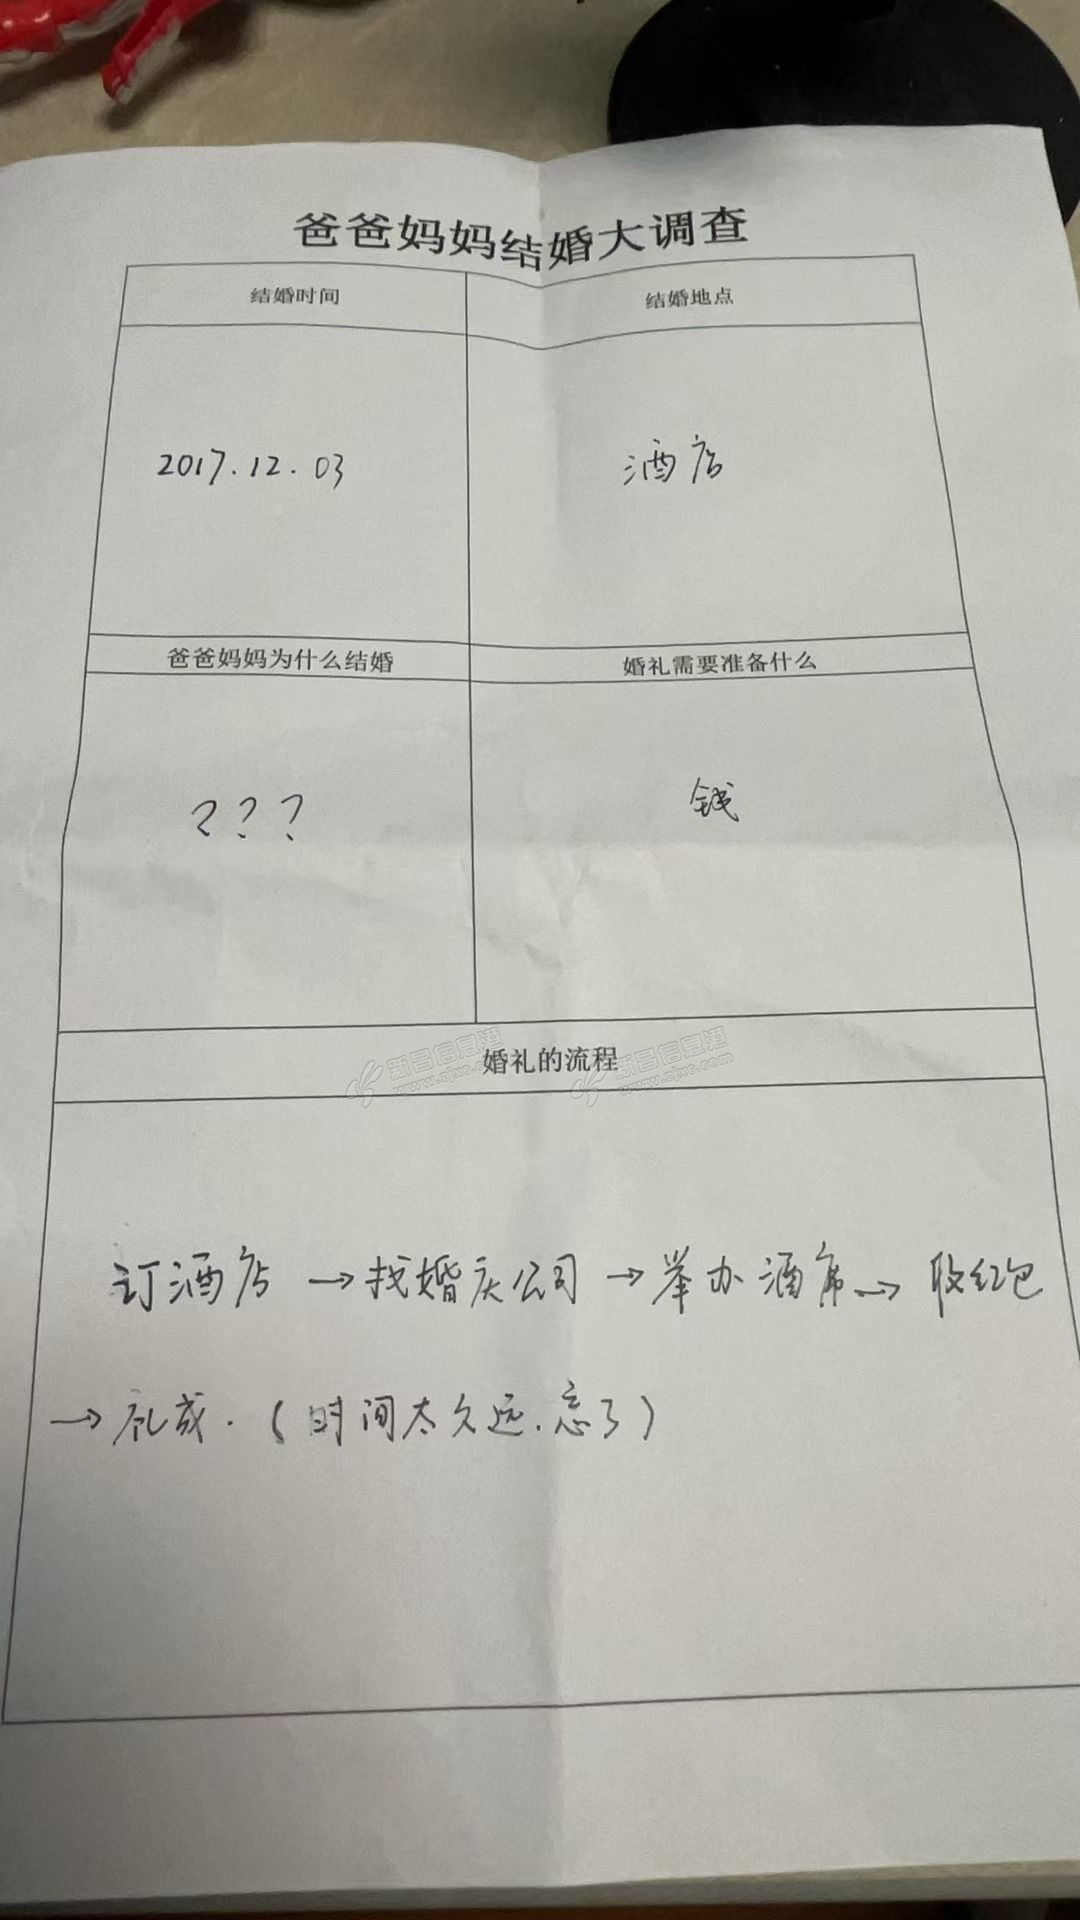 爸爸妈妈结婚大调查
结婚时间
结婚地点
2017.12.03
酒店
爸爸妈妈为什么结婚
婚礼需要准备什么
???
钱
婚礼的流程
新昌信息港
www.zjxc.com
新昌信息港
www.zjxc.com
订酒店→找婚庆公司→举办酒席→收红包
→礼成.(时间太久远.忘了)